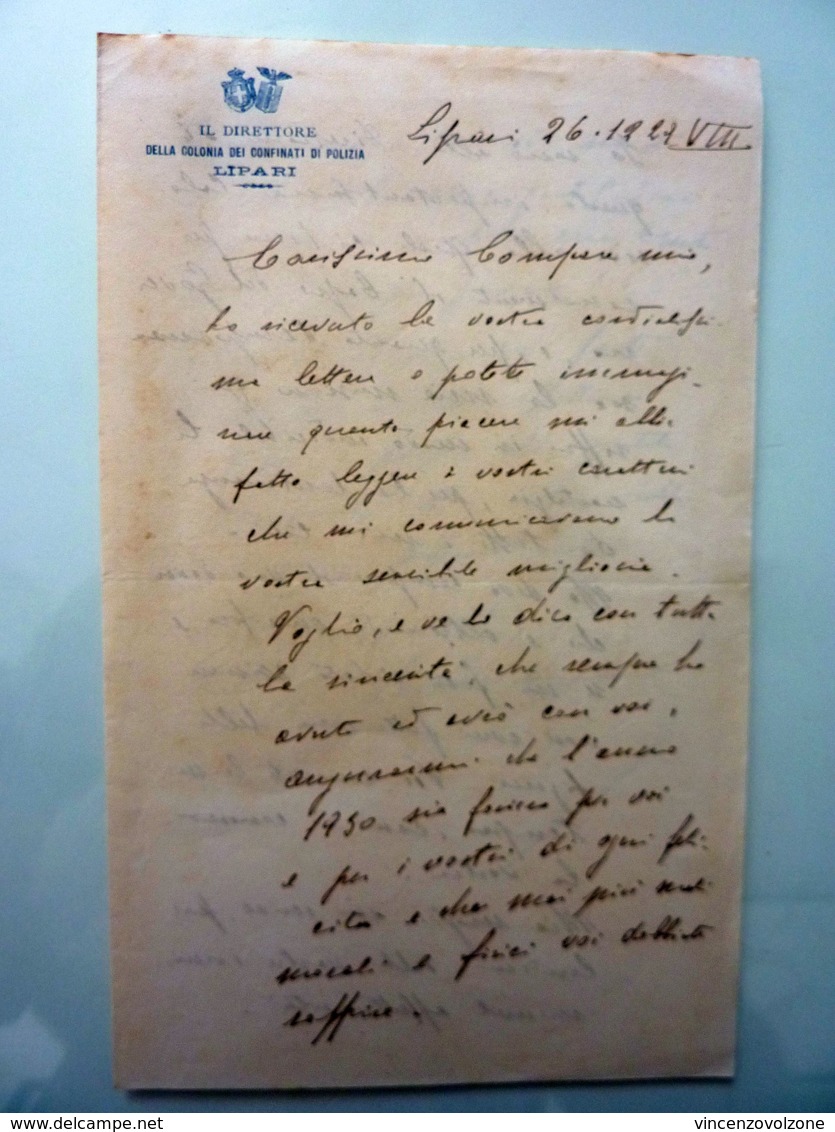 IL DIRETTORE
DELLA COLONIA DEI CONFINATI DI POLIZIA
LIPARI
Lipari 26.1929 VIII
Carissimo Compare mio,
ho ricevuto la vostra cordialissi
ma lettera e potete immagi-
nare quanto piacere mi abbia
fatto leggere i vostri caratteri
che mi comunicavano la
vostra sensibile miglioria.
Voglio, e ve lo dico con tutta
la sincerità che sempre ho
avuto ed avrò con voi,
augurarmi che l'anno
1930 sia foriero per voi
e per i vostri di ogni feli-
cità e che mai più mali
morali e fisici voi dobbiate
soffrire.
vincenzovolzone